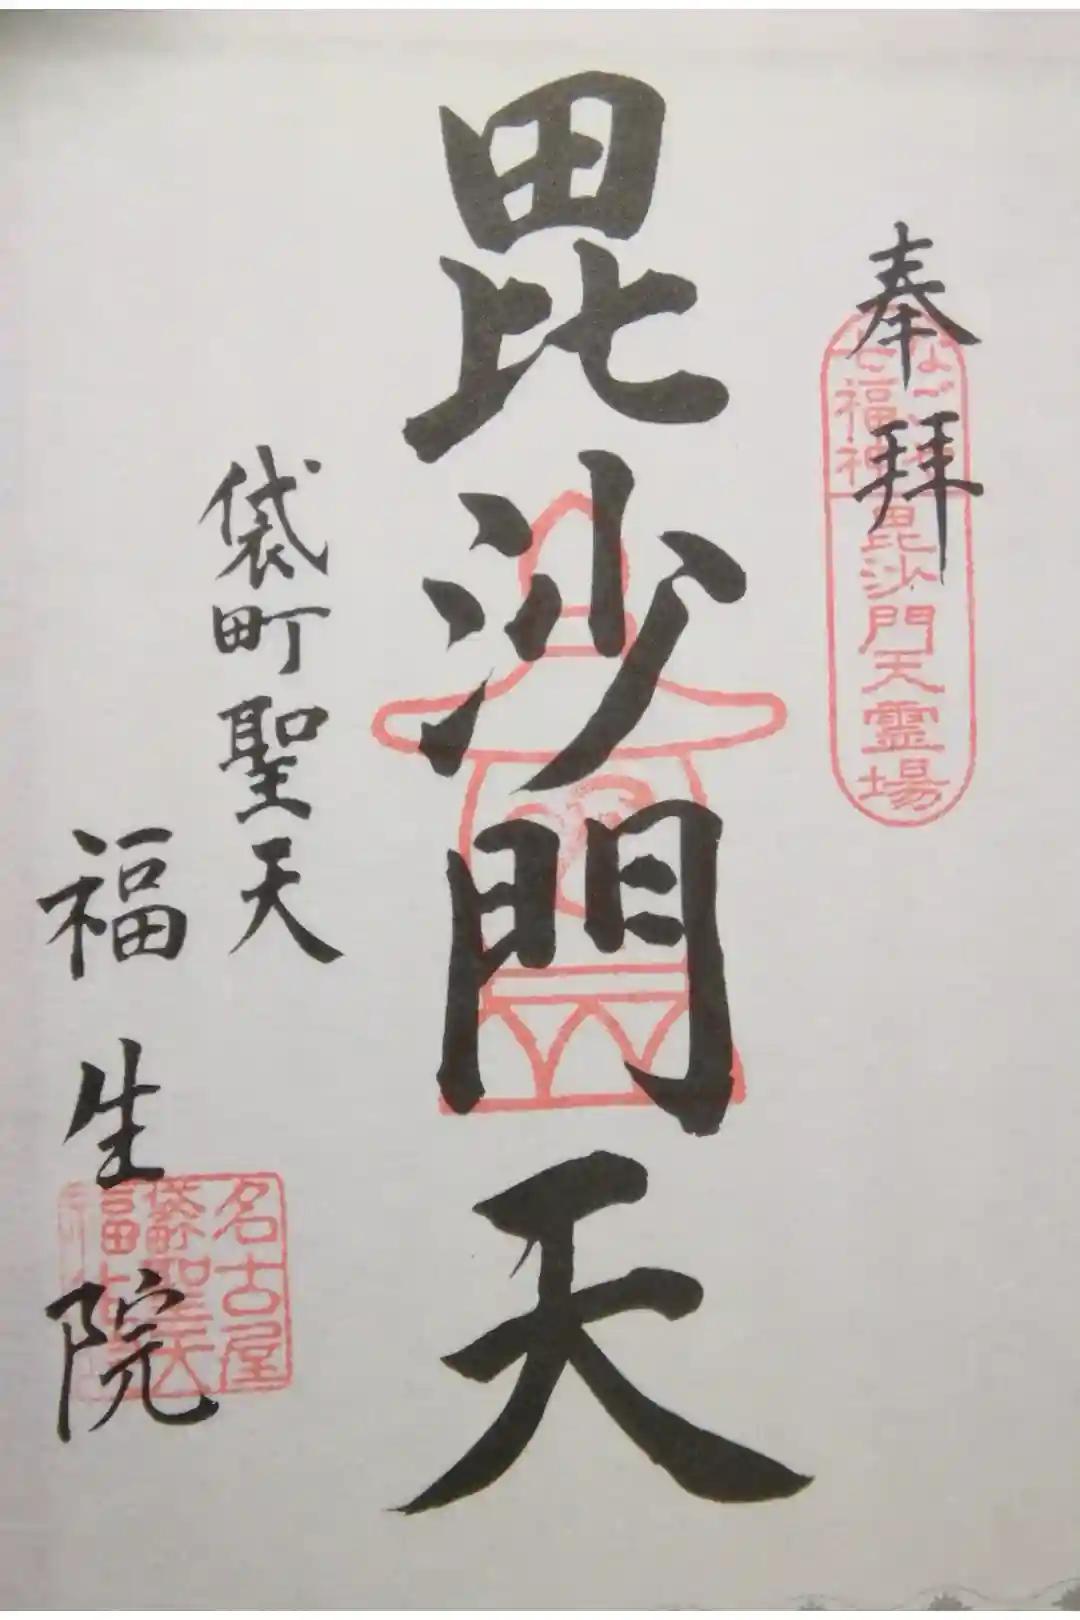 奉拝
なごや
七福神
毘沙門天霊場
毘沙門天
袋町聖天
福生院
名古屋
袋町聖天
福生院